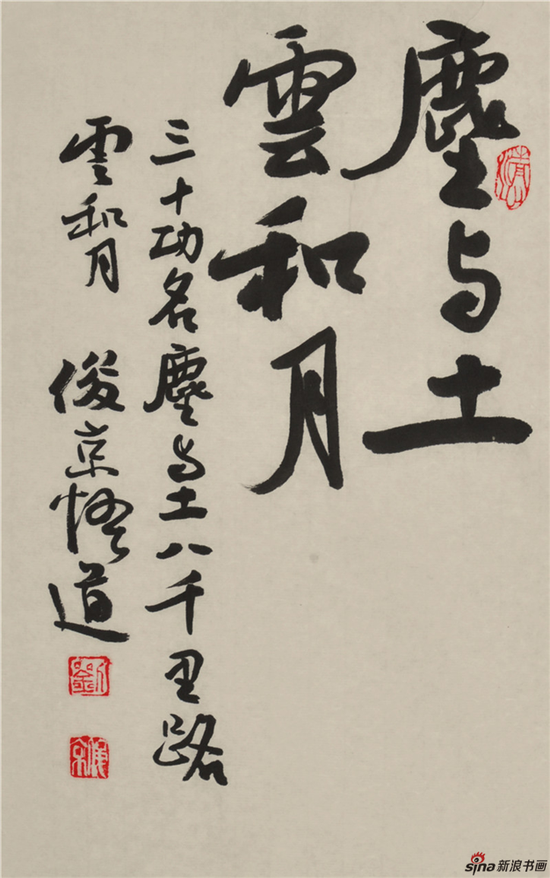 塵与土
雲和月
三十功名塵与土八千里路
雲和月 俊京悟道
劉
sina新浪书画